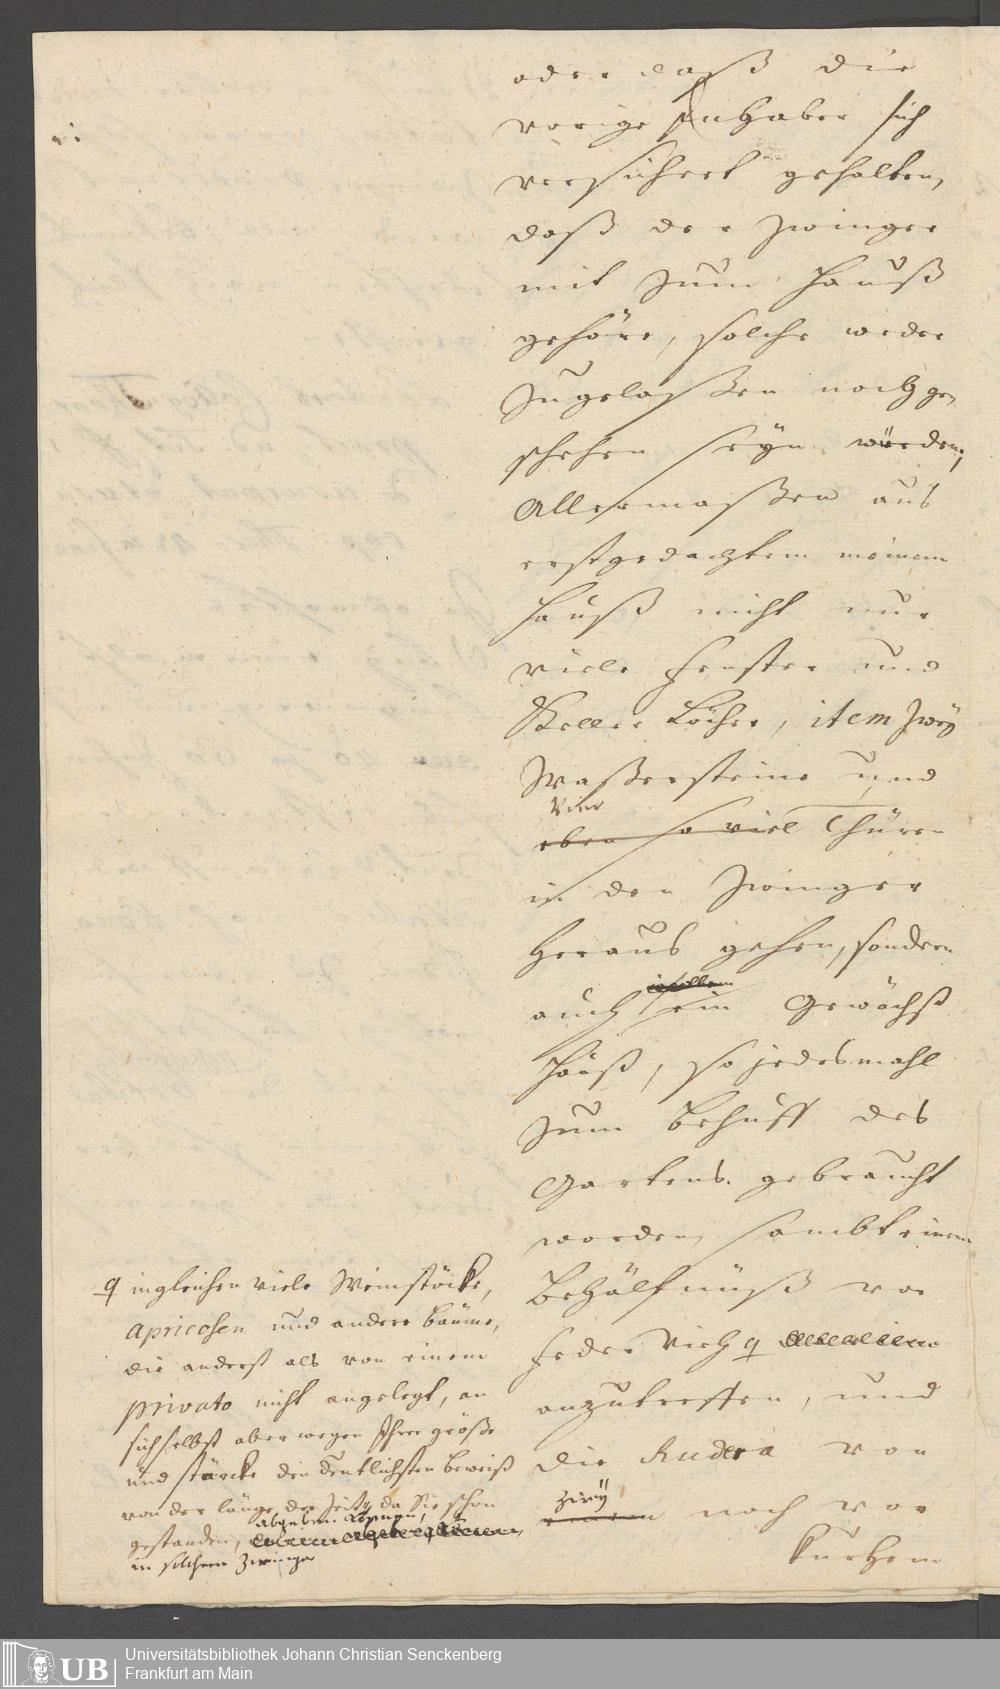 oder daß die
vorige Inhaber sich
versichert gehalten,
daß der Zwinger
mit zum Hauß
gehöre, solche weder
zugelaßen noch ge-
schehen seyn würden;
Allermaßen aus
erstgedachtem meinem
Hauß nicht nur
viele Fenster und
Keller Löcher, item zwey
Waßersteine und
vier
eben so viel Thüren
in den Zwinger
heraus gehen, sondern
auch ein Gewächß
Hauß, so jedesmahl
zum Behuff des
Gartens gebraucht
worden, sambt einem
Behältnüß vor
Feder Vieh q
anzutreffen, und
die Rudera von
zwey
noch vor
kurtzem
q ingleichen viele Weinstöcke,
Apricosen und andere Bäume,
die anderst als von einem
privato nicht angelegt, an
sich selbst aber wegen Ihrer größe
und stärcke den deutlichsten beweiß
von der länge der Zeit, da Sie schon
gestanden, abgeben können,
in solchem Zwinger
Universitätsbibliothek Johann Christian Senckenberg
Frankfurt am Main
UB